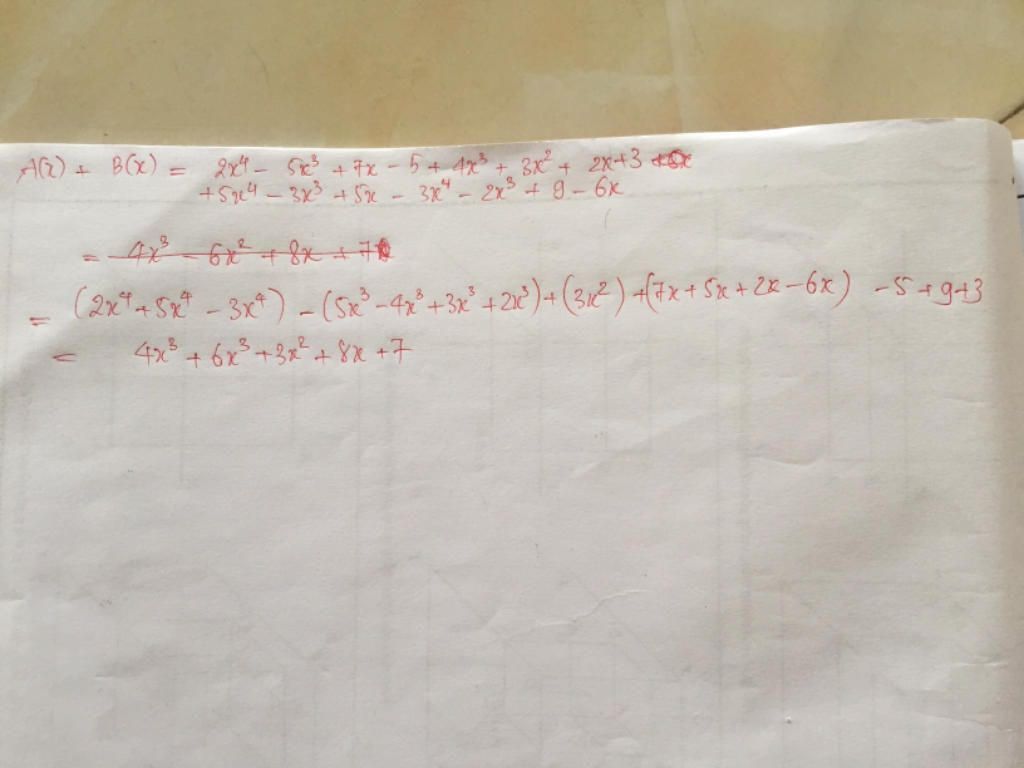 A(x) + B(x) = 2x⁴ - 5x³ + 7x - 5 + 4x³ + 3x² + 2x+3
+5x⁴ - 3x³ + 5x - 3x⁴ - 2x³ + 9 - 6x
= 4x³ - 6x² + 8x + 7
= (2x⁴ + 5x⁴ - 3x⁴) - (5x³ - 4x³ + 3x³ + 2x³) + (3x²) + (7x + 5x + 2x - 6x) - 5 + 9 + 3
= 4x³ + 6x³ + 3x² + 8x + 7